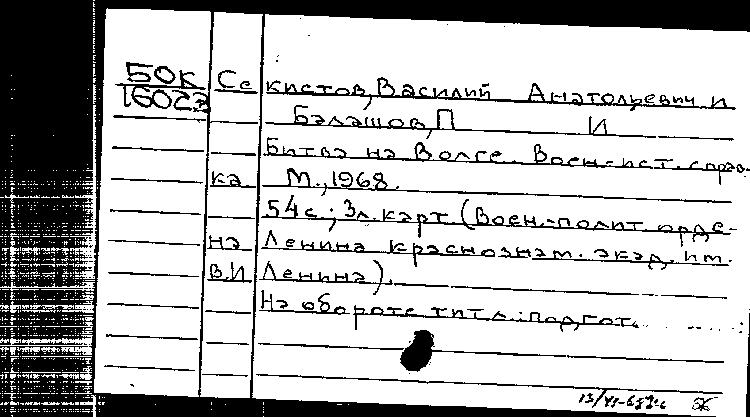 50К Се кистов, Василий Анатольевич и
160сэ Балашов, П И
Битва на Волге. Воен.-ист. справ-
ка М., 1968.
54с.; 3л. карт (Воен.-полит. орде-
на Ленина краснознам. акад. им.
В.И. Ленина).
На обороте тит.л.: подгот.